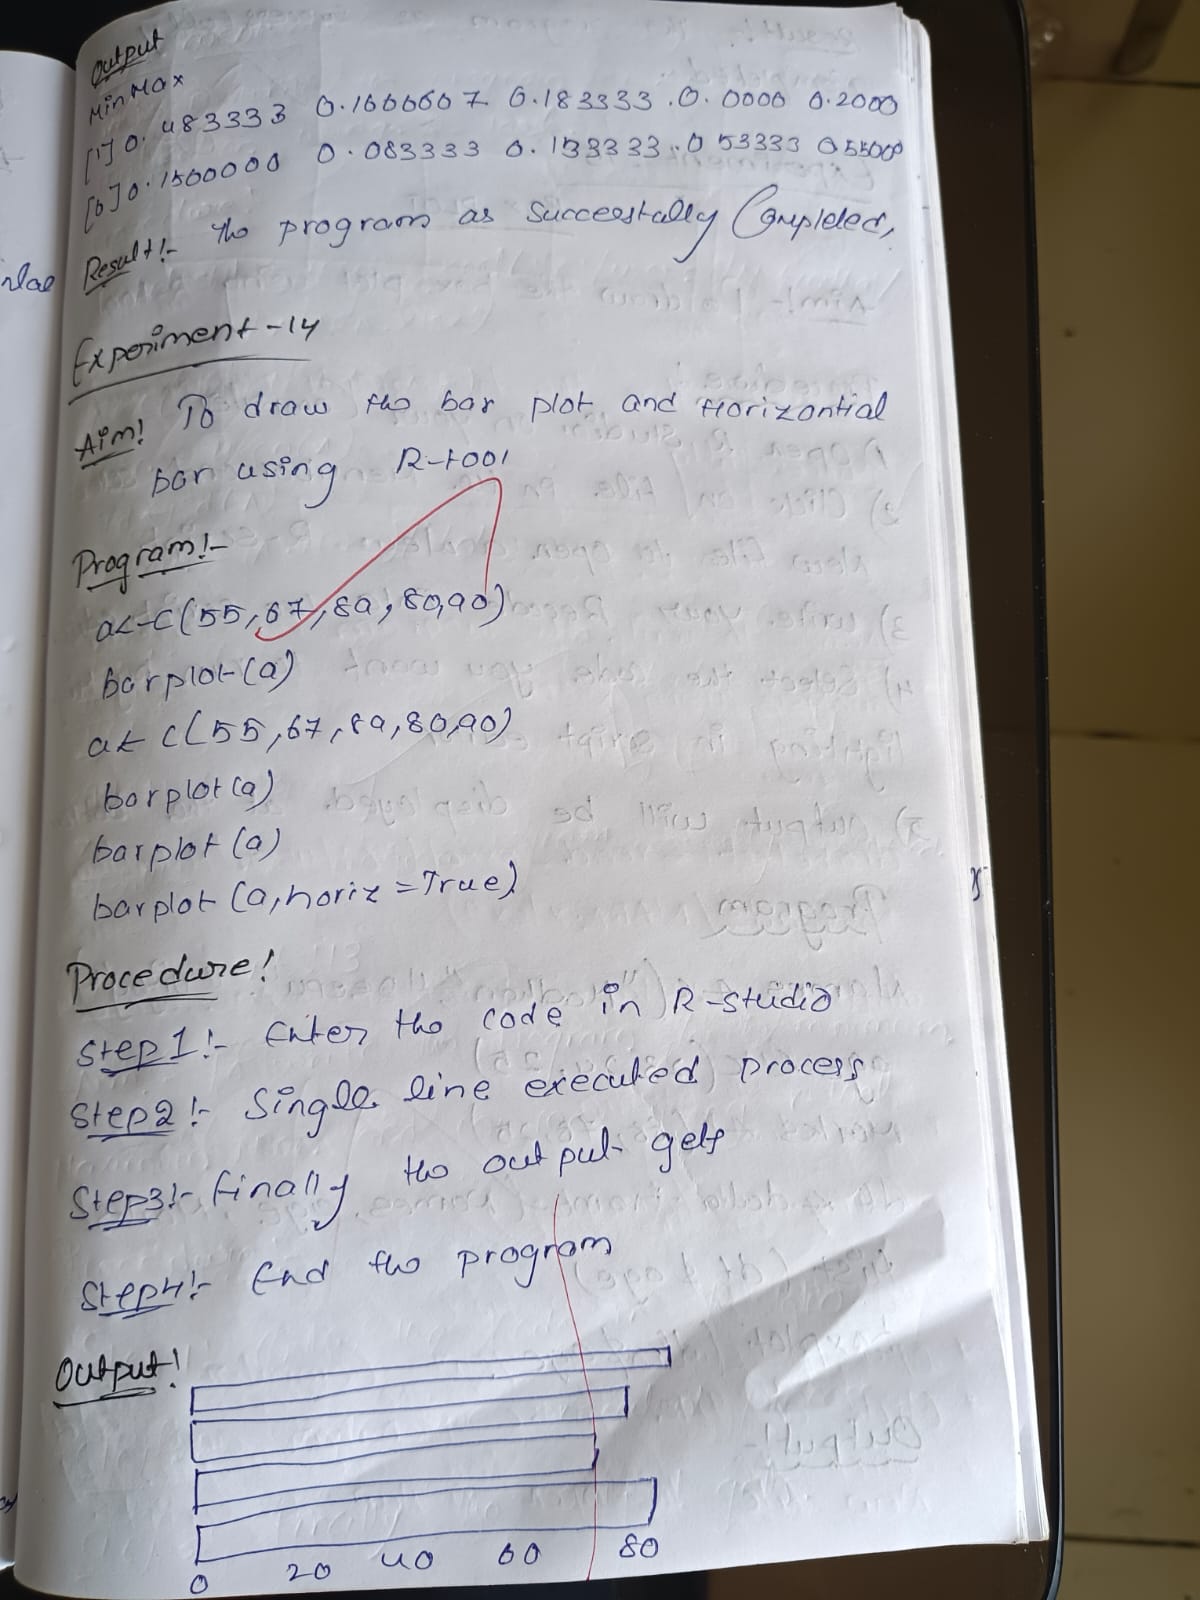 Output
MinMax
[1] 0.483333 0.1666667 0.183333.0.0000 0.2000
[6] 0.1500000 0.083333 0.133333.0 53333 055000
Result!- The program as Successfully Completed,
Experiment-14
Aim! To draw the bar plot and Horizontial
bar using R-tool
Program!-
a<-c(55,67,89,80,90)
barplot(a)
a< c(55,67,89,80,90)
barplot(a)
barplot(a)
barplot(a,horiz=True)
Procedure!
Step1!- Enter the code in R-studio
Step2!- Single line executed process
Step3!- finally the output gets
Step4!- End the program
Output!
0 20 40 60 80